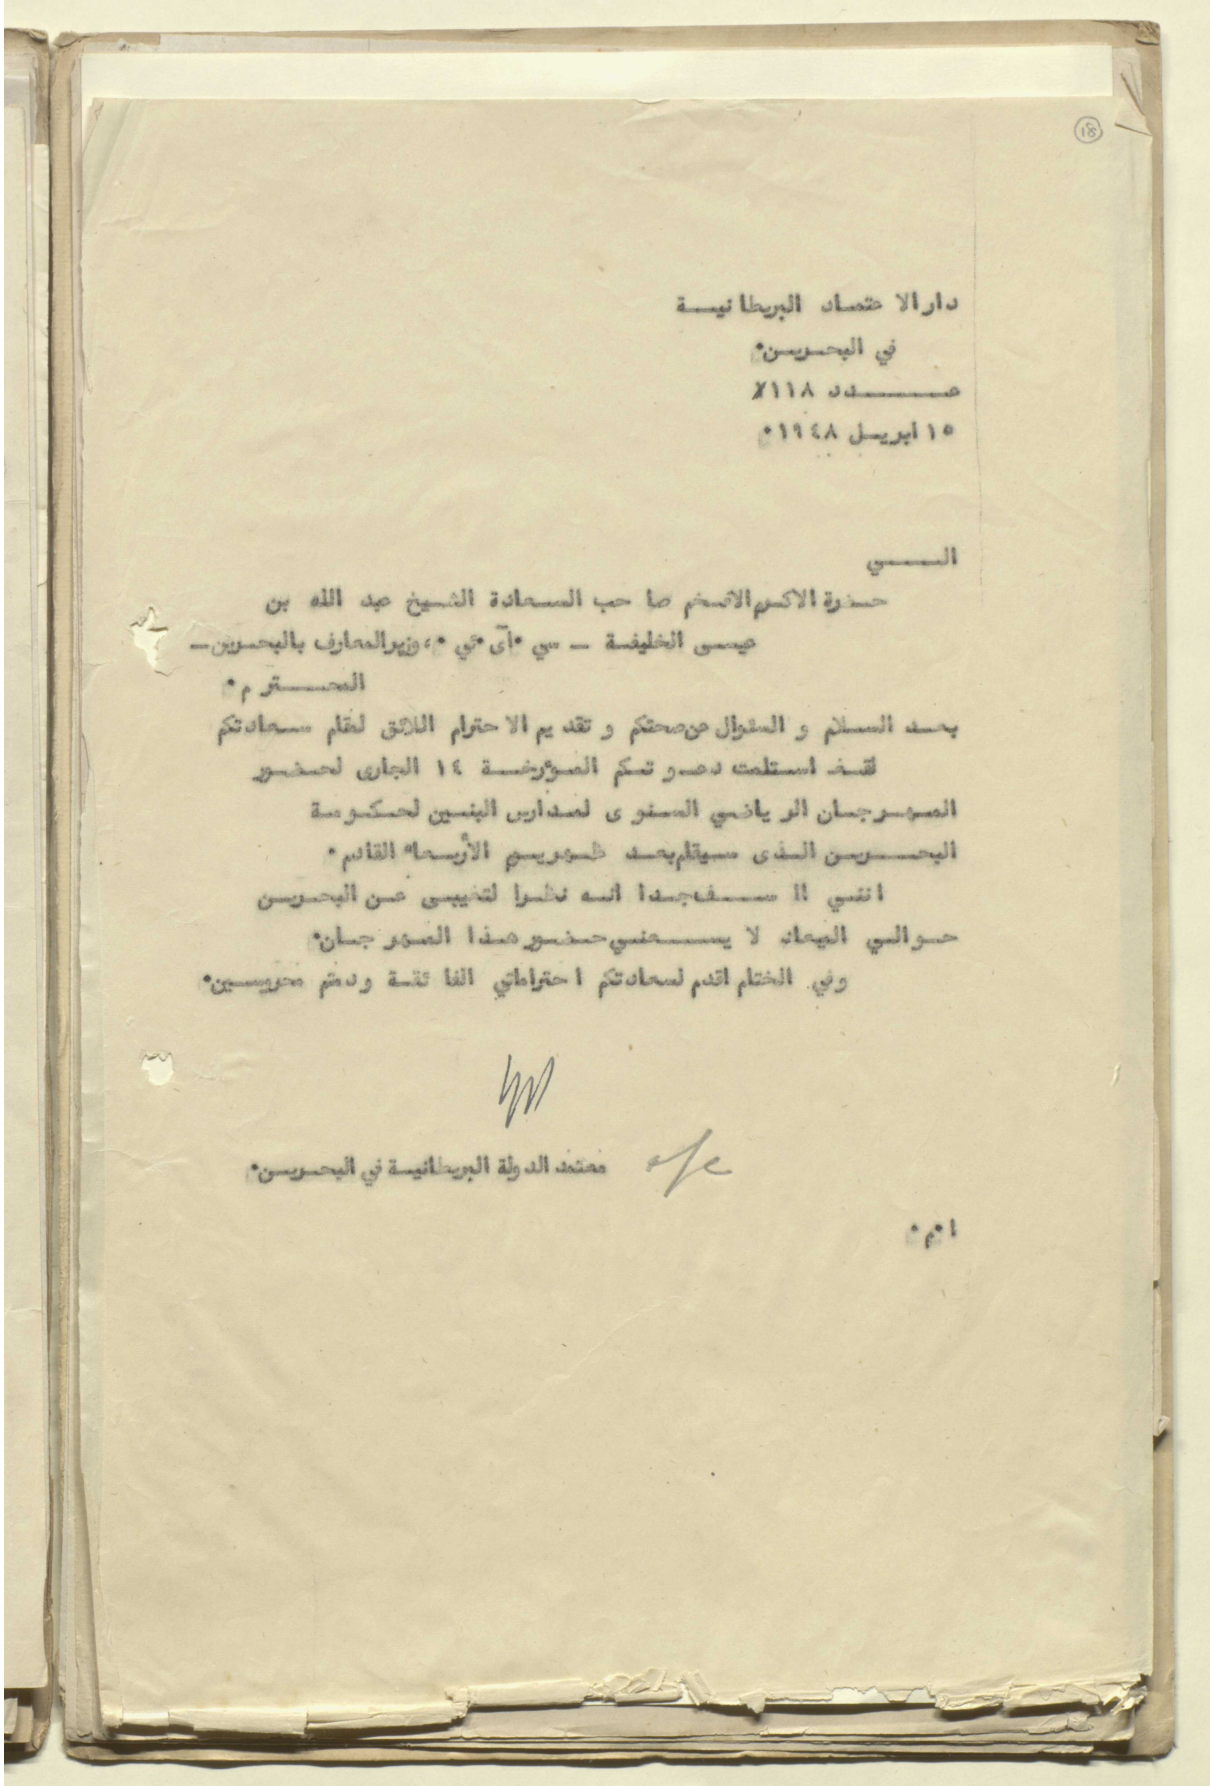 18
دار الاعتماد البريطانيـــة
في البحـــرين.
عـــــــدد ١١٨
١٥ ابريــل ١٩٤٨.
الـــــي
حـضرة الاكرم الافخم صاحب السعادة الشيخ عبد الله بن
عيسى الخليفة – سي .آى .ئي .، وزير المعارف بالبحرين –
المحـــــترم.
بعـد السلام و السئوال عن صحتكم و تقديم الاحترام اللائق لمقام سعادتكم
لقـد استلمت دعـوتـكم المؤرخـة ١٤ الجارى لحـضور
المهـرجـان الرياضي السنوى لمدارس البنين لحـكومـة
البحـــرين الـذى سيقام بعـد ظهر يوم الأربـعاء القادم.
انني اا ســـف جـدا انـه نظـرا لتغيبى عـن البحـرين
حـوالـي الميعاد لا يســـعنـي حـضور هـذا المهرجـان.
وفي الختام اقدم لسعادتكم احتراماتي الفائقـة ودمتم محروسـين.
معتمد الدولة البريطانيـة في البحـرين.
ا.م.